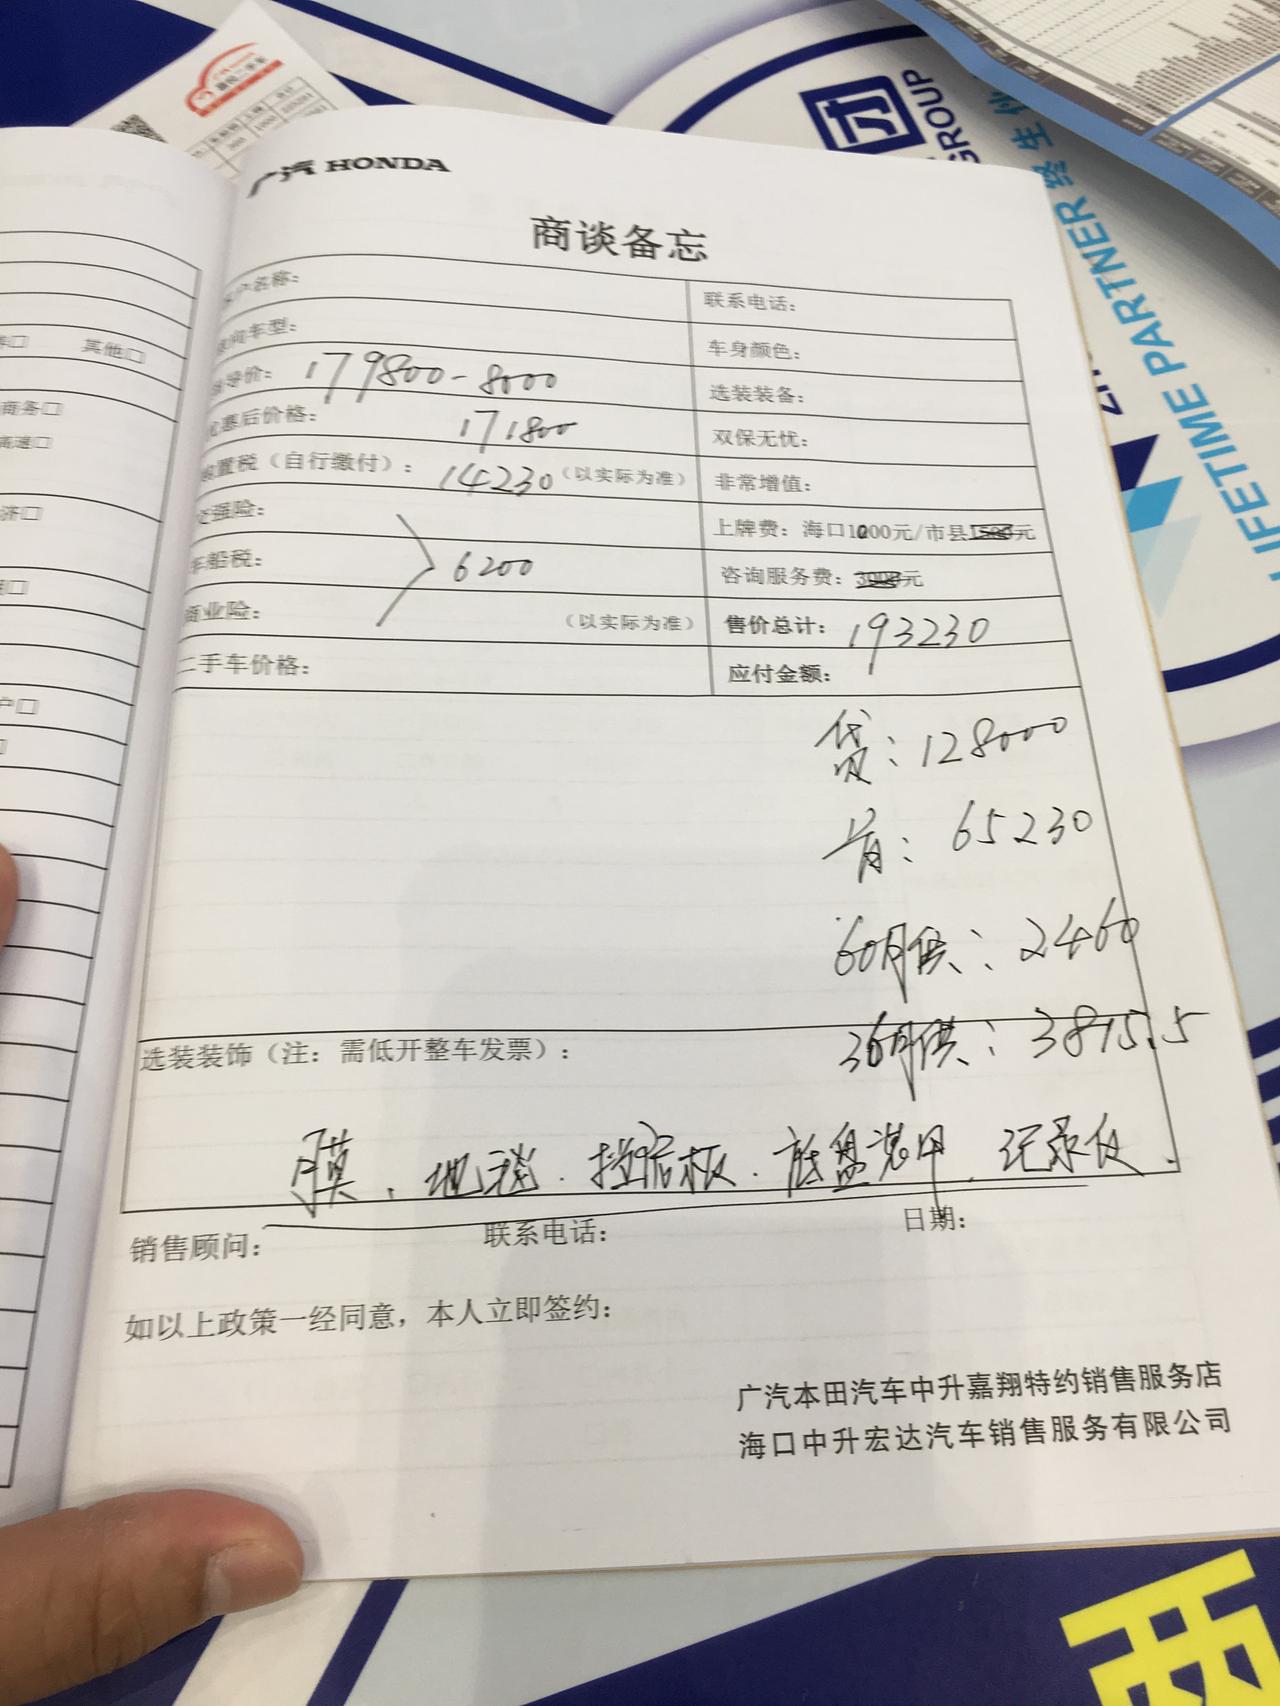 广汽 HONDA
商谈备忘
客户名称：
联系电话：
意向车型：
车身颜色：
指导价： 179800-8000
选装装备：
优惠后价格： 171800
双保无忧：
购置税（自行缴付）： 14230（以实际为准）
非常增值：
交强险：
上牌费：海口1000元/市县1500元
车船税： 6200
咨询服务费：3000元
商业险： （以实际为准）
售价总计： 193230
二手车价格：
应付金额：
贷：128000
首：65230
60月供：2460
36月供：3815.5
选装装饰（注：需低开整车发票）：
膜、地毯、挡泥板、底盘装甲、记录仪、
销售顾问： 联系电话： 日期：
如以上政策一经同意，本人立即签约：
广汽本田汽车中升嘉翔特约销售服务店
海口中升宏达汽车销售服务有限公司
其他□
商务□
高速□
济□
户□
GROUP
LIFETIME PARTNER
终生伙
两